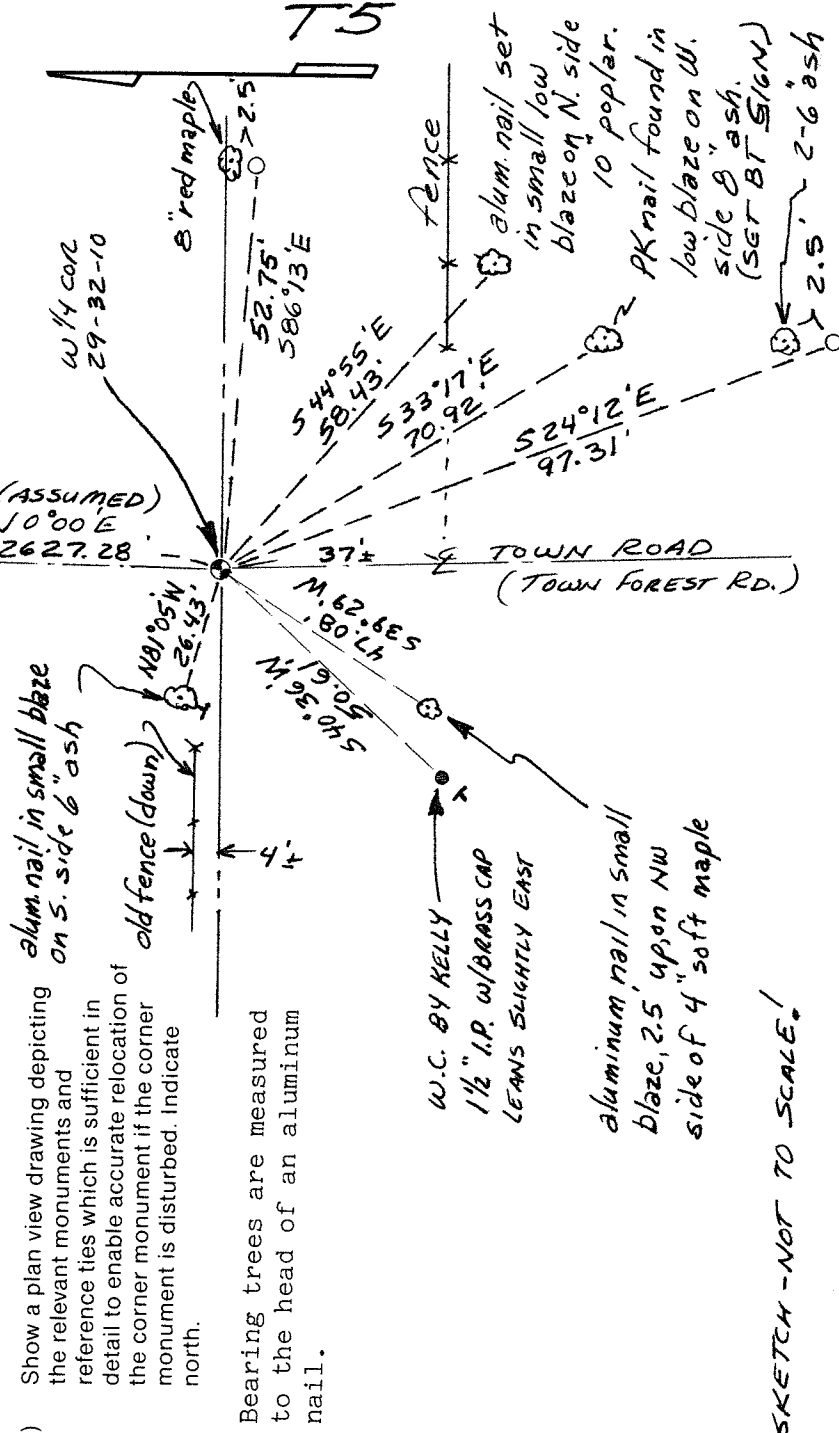 )
Show a plan view drawing depicting
the relevant monuments and
reference ties which is sufficient in
detail to enable accurate relocation of
the corner monument if the corner
monument is disturbed. Indicate
north.
Bearing trees are measured
to the head of an aluminum
nail.
alum. nail in small blaze
on S. side 6" ash
old fence (down)
4'±
N81°05'W
26.43'
(ASSUMED)
10°00'E
2627.28'
W 1/4 COR
29-32-10
T5
8" red maple
> 2.5'
52.75'
S86°13'E
fence
S44°55'E
58.43'
alum. nail set
in small low
blaze on N. side
10" poplar.
S33°17'E
70.92'
PK nail found in
low blaze on W.
side 8" ash.
(SET BT SIGN)
S24°12'E
97.31'
2-6" ash
> 2.5'
37'±
℄ TOWN ROAD
(TOWN FOREST RD.)
S39°29'W
47.08'
S40°36'W
50.61'
W.C. BY KELLY
1 1/2" I.P. W/BRASS CAP
LEANS SLIGHTLY EAST
aluminum nail in small
blaze, 2.5' up, on NW
side of 4" soft maple
SKETCH - NOT TO SCALE!